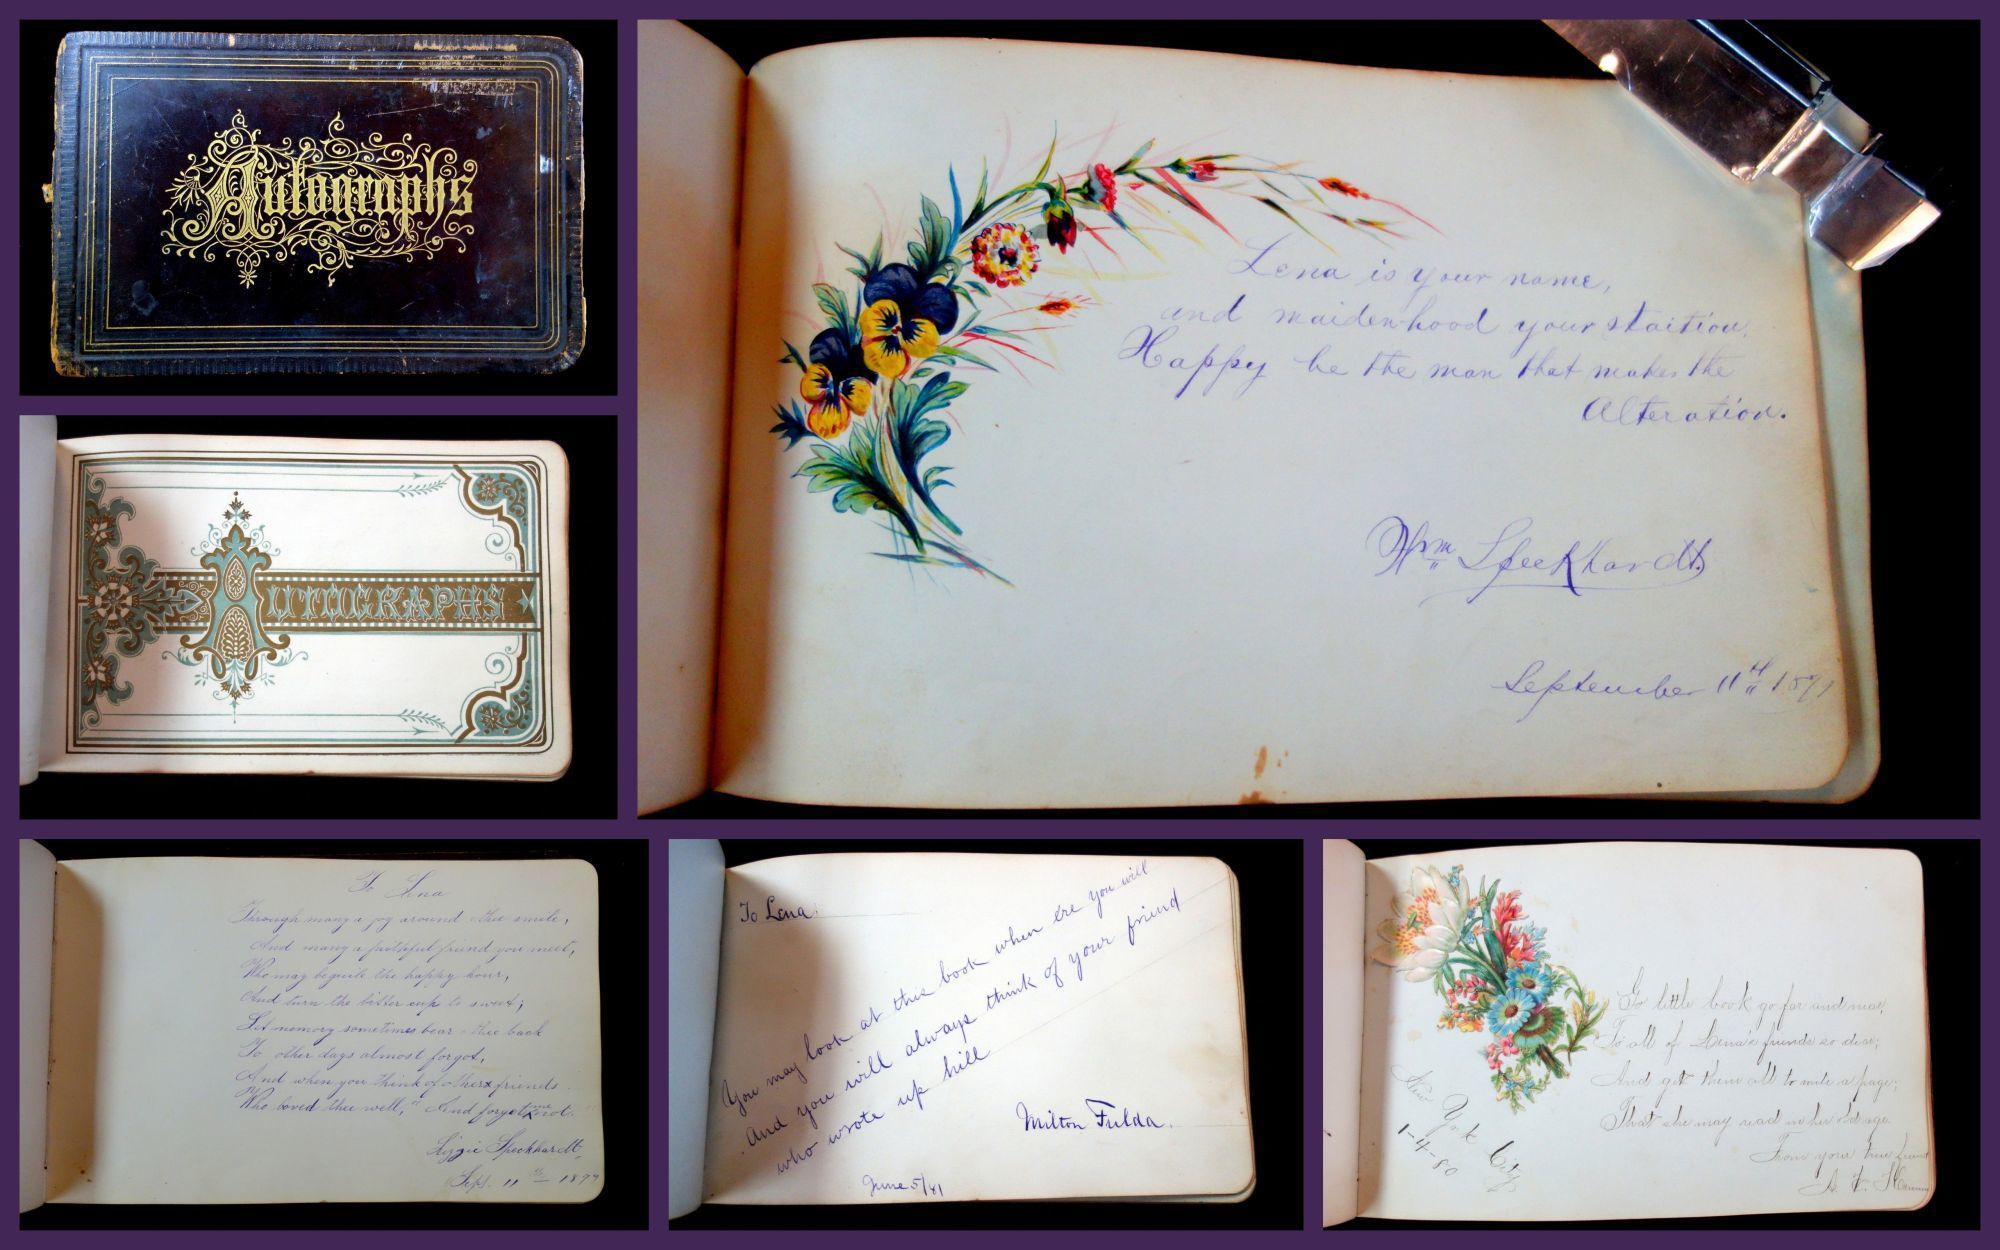 Autographs
Lena is your name,
and maidenhood your staition.
Happy be the man that makes the
Alteration.
Wm Speckhardt
September 11th 187
AUTOGRAPHS
To Lena
Through many a joy around thee smile,
And many a faithful friend you meet,
Who may beguile the happy hour,
And turn the bitter cup to sweet;
Let memory sometimes bear thee back
To other days almost forgot,
And when you think of others friends
Who loved thee well, And forget me not.
Lizzie Speckhardt
Sept. 11th 1879
To Lena!
You may look at this book when ere you will
And you will always think of your friend
who wrote up hill
Milton Fulda.
June 5/81
Go little book go far and near,
To all of Lena's friends so dear;
And get them all to write a page;
That she may read in her old age.
From your true friend
New York City
1-4-80